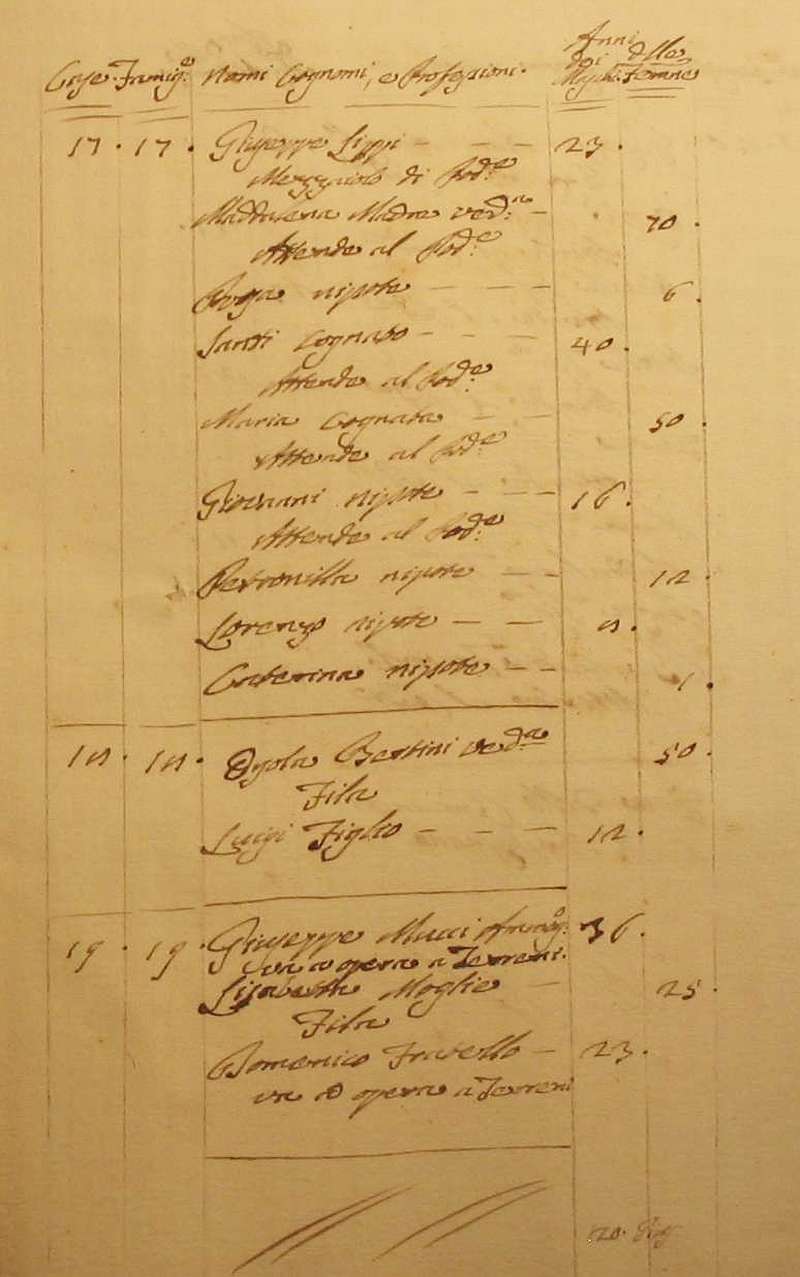 Case. Famig.e Nomi Cognomi, e Professioni. Anni dei Maschi. delle Femine
17. 17. Giuseppe Lippi - - - 23.
Mezzaiolo di Pod.e
Maddalena Madre ved.a - 70.
Attende al Pod.e
Rosa nipote - - - 6.
Santi Cognato - - - 40.
Attende al Pod.e
Maria Cognata - - 50.
Attende al Pod.e
Giovanni nipote - - - 16.
Attende al Pod.e
Petronilla nipote - - 12.
Lorenzo nipote - - 8.
Caterina nipote - - 1.
18. 18. Bertini ved.a 50.
Fila
Luigi Figlio - - - 12.
19. 19. Giuseppe Mucci 36.
va a opera a Terreni.
Lisabetta Moglie - 25.
Fila
Domenico Fratello - 23.
va a opera a Terreni
20.